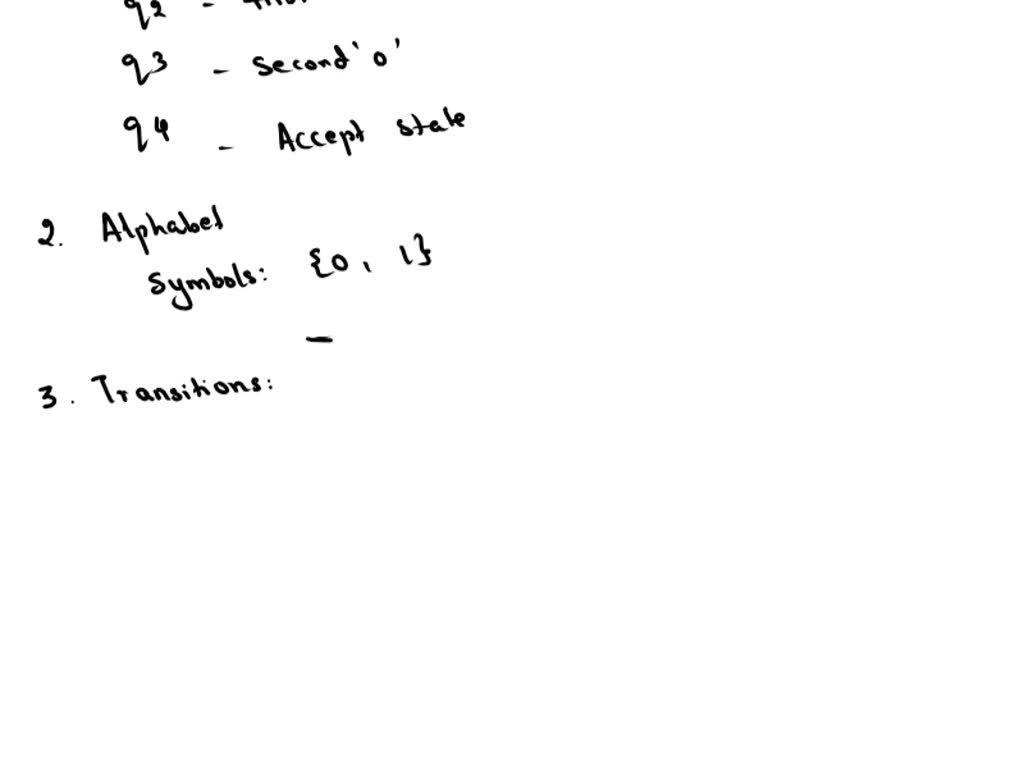 q2 -
q3 - Second 'o'
q4 - Accept state
2. Alphabet
Symbols: {0, 1}
3. Transitions: